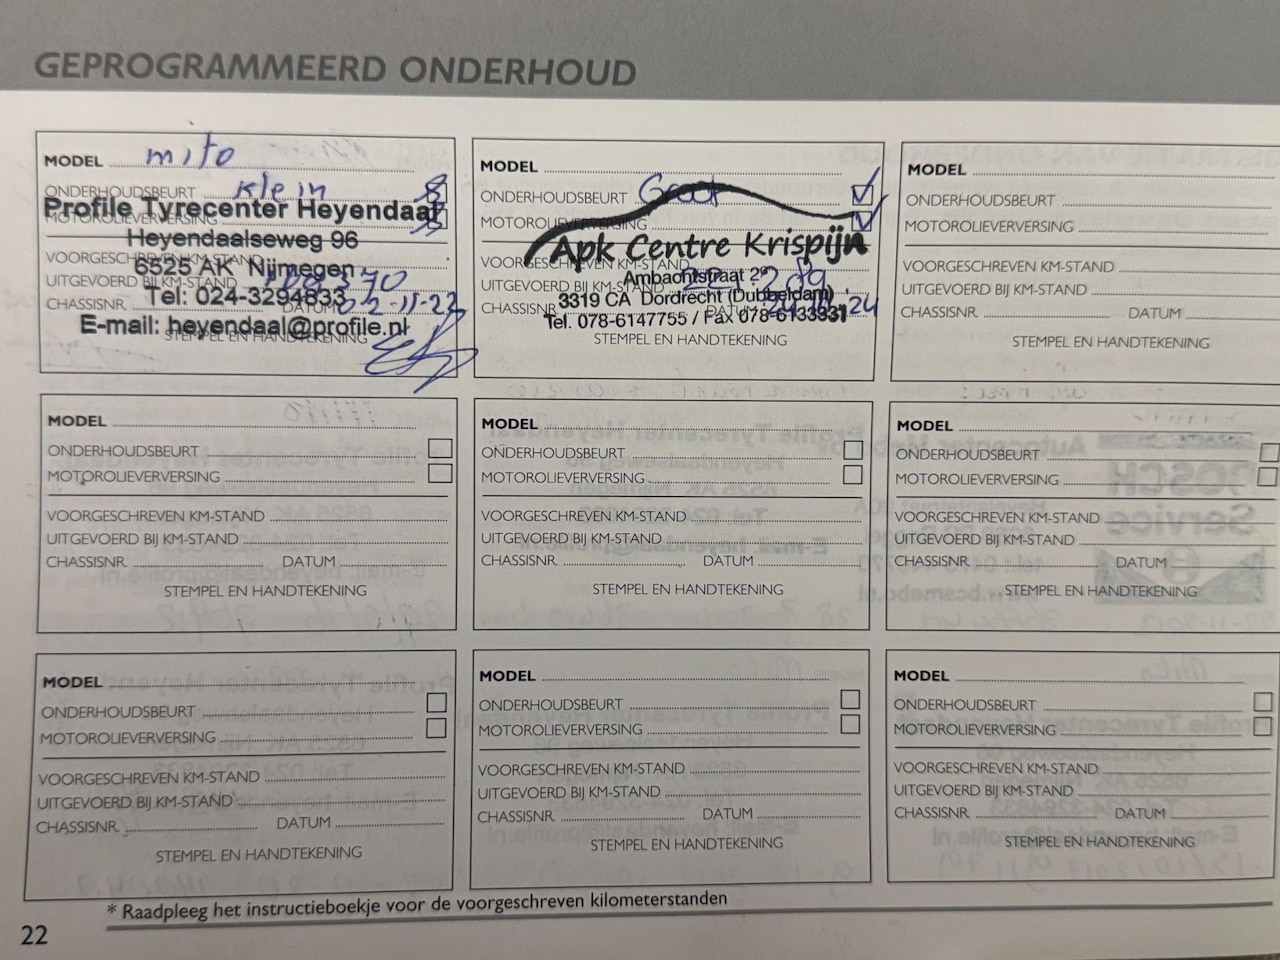 GEPROGRAMMEERD ONDERHOUD
MODEL mito
ONDERHOUDSBEURT Klein
MOTOROLIEVERVERSING
Profile Tyrecenter Heyendaal
Heyendaalseweg 96
6525 AK Nijmegen
Tel: 024-3294833
E-mail: heyendaal@profile.nl
VOORGESCHREVEN KM-STAND
UITGEVOERD BIJ KM-STAND
CHASSISNR. DATUM 22-11-22
STEMPEL EN HANDTEKENING
MODEL
ONDERHOUDSBEURT Groot
MOTOROLIEVERVERSING
Apk Centre Krispijn
Ambachtstraat 2a
3319 CA Dordrecht (Dubbeldam)
Tel. 078-6147755 / Fax 078-6133331
VOORGESCHREVEN KM-STAND
UITGEVOERD BIJ KM-STAND
CHASSISNR. DATUM
STEMPEL EN HANDTEKENING
MODEL
ONDERHOUDSBEURT
MOTOROLIEVERVERSING
VOORGESCHREVEN KM-STAND
UITGEVOERD BIJ KM-STAND
CHASSISNR. DATUM
STEMPEL EN HANDTEKENING
MODEL
ONDERHOUDSBEURT
MOTOROLIEVERVERSING
VOORGESCHREVEN KM-STAND
UITGEVOERD BIJ KM-STAND
CHASSISNR. DATUM
STEMPEL EN HANDTEKENING
MODEL
ONDERHOUDSBEURT
MOTOROLIEVERVERSING
VOORGESCHREVEN KM-STAND
UITGEVOERD BIJ KM-STAND
CHASSISNR. DATUM
STEMPEL EN HANDTEKENING
MODEL
ONDERHOUDSBEURT
MOTOROLIEVERVERSING
VOORGESCHREVEN KM-STAND
UITGEVOERD BIJ KM-STAND
CHASSISNR. DATUM
STEMPEL EN HANDTEKENING
MODEL
ONDERHOUDSBEURT
MOTOROLIEVERVERSING
VOORGESCHREVEN KM-STAND
UITGEVOERD BIJ KM-STAND
CHASSISNR. DATUM
STEMPEL EN HANDTEKENING
MODEL
ONDERHOUDSBEURT
MOTOROLIEVERVERSING
VOORGESCHREVEN KM-STAND
UITGEVOERD BIJ KM-STAND
CHASSISNR. DATUM
STEMPEL EN HANDTEKENING
MODEL
ONDERHOUDSBEURT
MOTOROLIEVERVERSING
VOORGESCHREVEN KM-STAND
UITGEVOERD BIJ KM-STAND
CHASSISNR. DATUM
STEMPEL EN HANDTEKENING
* Raadpleeg het instructieboekje voor de voorgeschreven kilometerstanden
22